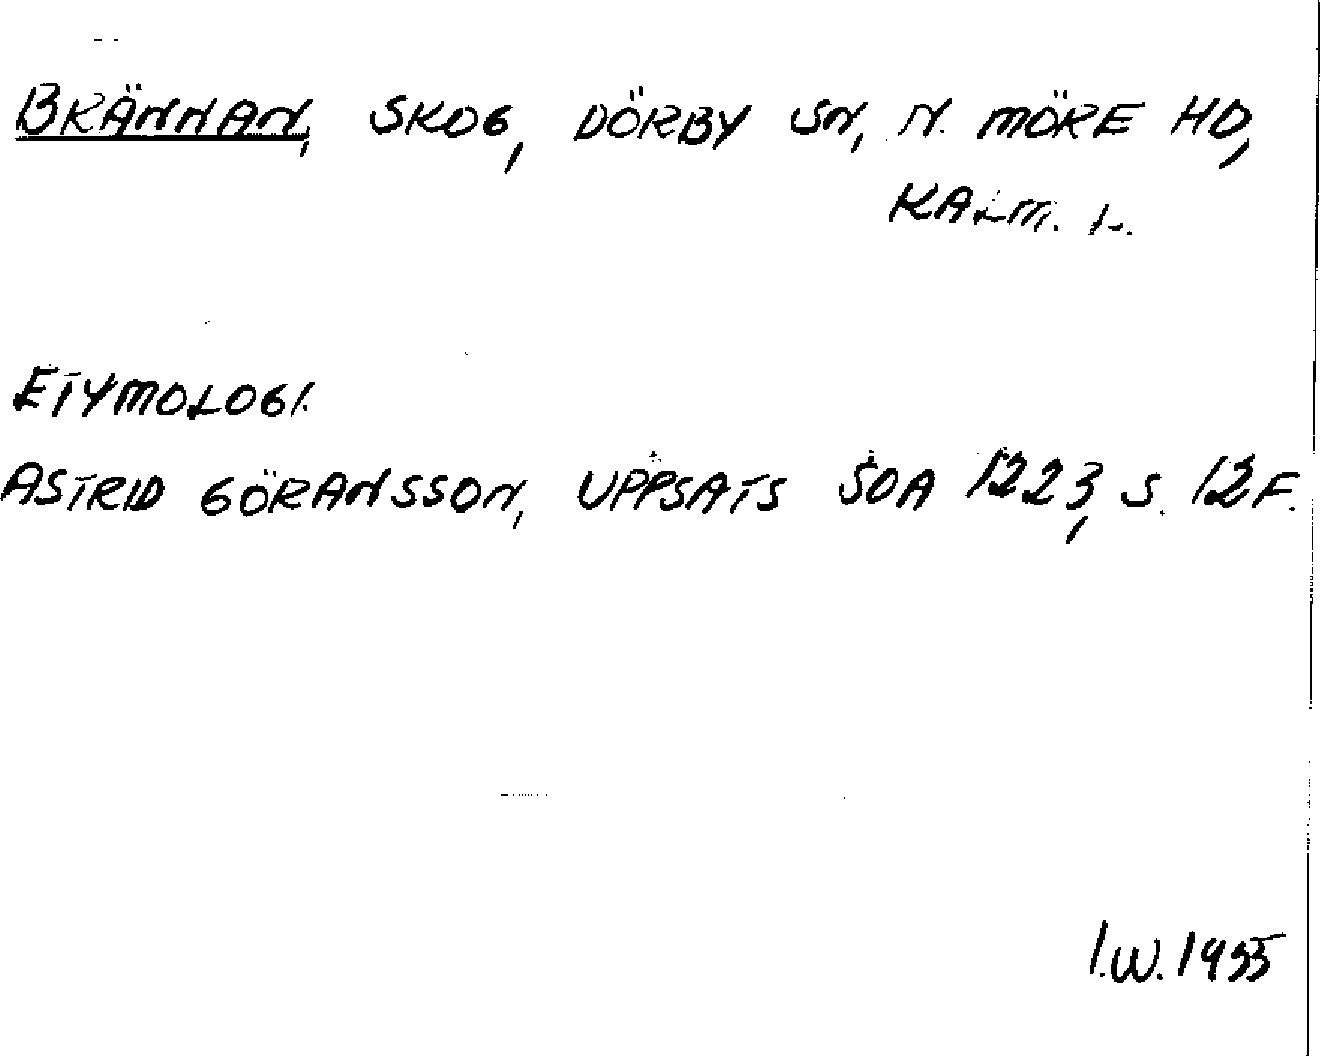 BRÄNNAN, SKOG, DÖRBY SN, N. MÖRE HD,
KALM. L.
ETYMOLOGI.
ASTRID GÖRANSSON, UPPSATS SOA 1223, S. 12F.
I.W. 1955